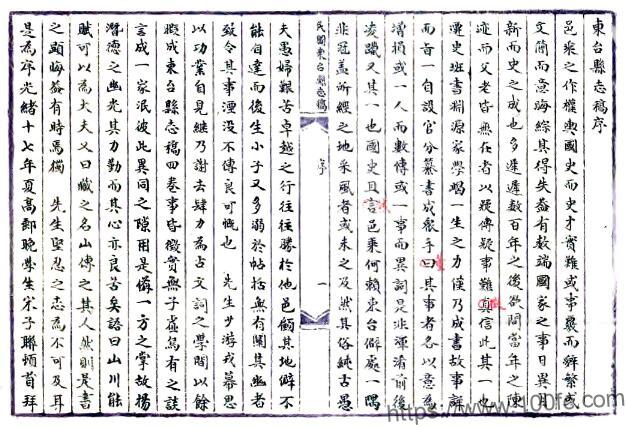 東台縣志稿序
邑乘之作權輿國史而史才實難或事覈而辭繁或
文簡而意晦綜其得失蓋有數端國家之事日異月
新而史之成也多遲遲數百年之後欲問當年之陳
迹而父老皆無在者以疑傳疑事難真信此其一也
遷史班書淵源家學竭一生之力僅乃成書故事詳
而言一自設官分纂書成眾手曰其事者各以意為
增損或一人而數傳或一事而異詞是非渾淆前後
淩躐又其一也國史且言邑乘何賴東台僻處一隅
非冠蓋所經之地采風者或未之及然其俗純古愚
民國東台縣志稿 序 一
夫愚婦艱苦卓越之行往往勝於他邑顧其地僻不
能自達而後生小子又多溺於帖括無有闡其幽者
致令其事湮沒不傳良可慨也 先生少游戎幕思
以功業自見繼乃謝去肆力為古文詞之學間以餘
暇成東台縣志稿四卷事皆徵實無子虛烏有之談
言成一家泯彼此異同之隙用是備一方之掌故揚
潛德之幽光其力勤而其心亦良苦矣語曰山川能
賦可以為大夫又曰藏之名山傳之其人然則是書
之顯晦蓋有時焉獨 先生堅忍之志為不可及耳
是為序光緒十七年夏高郵晚學生宋子聯頓首拜
https://www.100fe.com